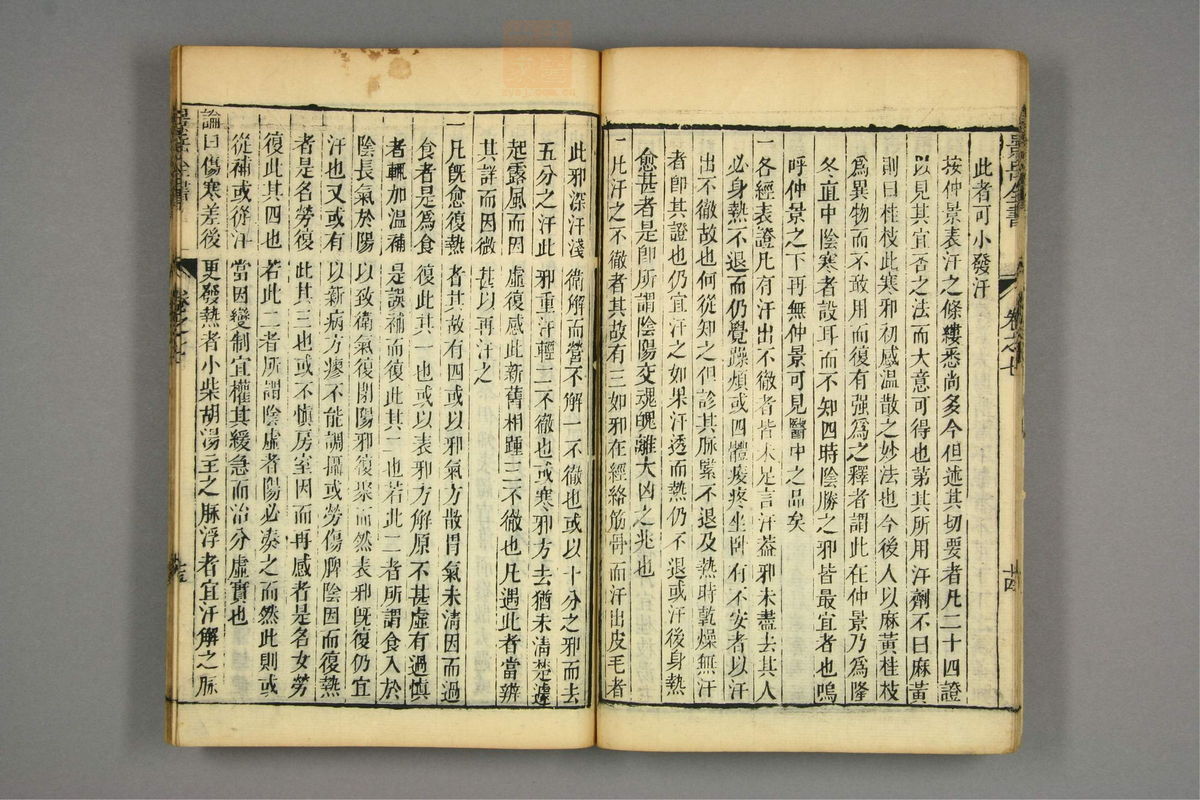 景岳全書
卷之七
十四
此者可小發汗
按仲景表汗之條縷悉尚多今但述其切要者凡二十四證
以見其宜否之法而大意可得也第其所用汗劑不曰麻黃
則曰桂枝此寒邪初感温散之妙法也今後人以麻黃桂枝
爲異物而不敢用而復有强爲之釋者謂此在仲景乃爲隆
冬直中陰寒者設耳而不知四時陰勝之邪皆最宜者也嗚
呼仲景之下再無仲景可見醫中之品矣
一各經表證凡有汗出不徹者皆未足言汗葢邪未盡去其人
必身熱不退而仍覺躁煩或四體痠疼坐臥有不安者以汗
出不徹故也何從知之但診其脉緊不退及熱時乾燥無汗
者卽其證也仍宜汗之如果汗透而熱仍不退或汗後身熱
愈甚者是卽所謂陰陽交魂魄離大凶之兆也
一凡汗之不徹者其故有三如邪在經絡筋骨而汗出皮毛者
此邪深汗淺衛解而營不解一不徹也或以十分之邪而去
五分之汗此邪重汗輕二不徹也或寒邪方去猶未清楚遽
起露風而因虛復感此新舊相踵三不徹也凡遇此者當辨
其詳而因微甚以再汗之
一凡旣愈復熱者其故有四或以邪氣方散胃氣未清因而過
食者是爲食復此其一也或以表邪方解原不甚虛有過愼
者輒加温補是誤補而復此其二也若此二者所謂食入於
陰長氣於陽以致衛氣復閉陽邪復聚而然表邪旣復仍宜
汗也又或有以新病方瘳不能調攝或勞傷脾陰因而復熱
者是名勞復此其三也或不愼房室因而再感者是名女勞
復此其四也若此二者所謂陰虛者陽必湊之而然此則或
從補或從汗當因變制宜權其緩急而治分虛實也
論曰傷寒差後更發熱者小柴胡湯主之脉浮者宜汗解之脉
景岳全書
卷之七
十五